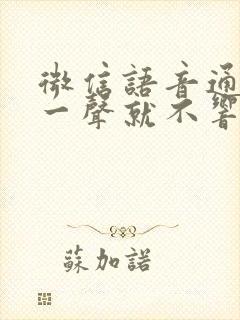 微信語音通
一聲就不響
蘇加諾